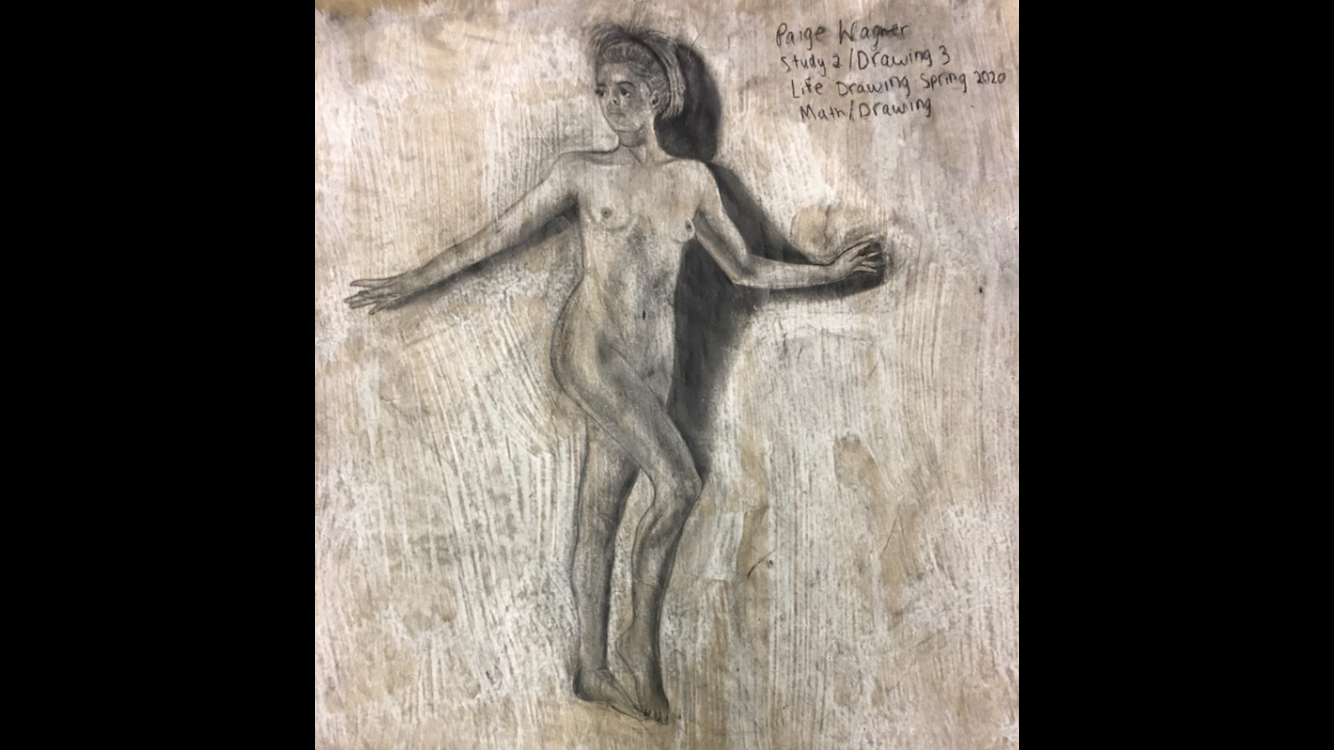 Paige Wagner
Study 2/Drawing 3
Life Drawing Spring 2020
Math/Drawing